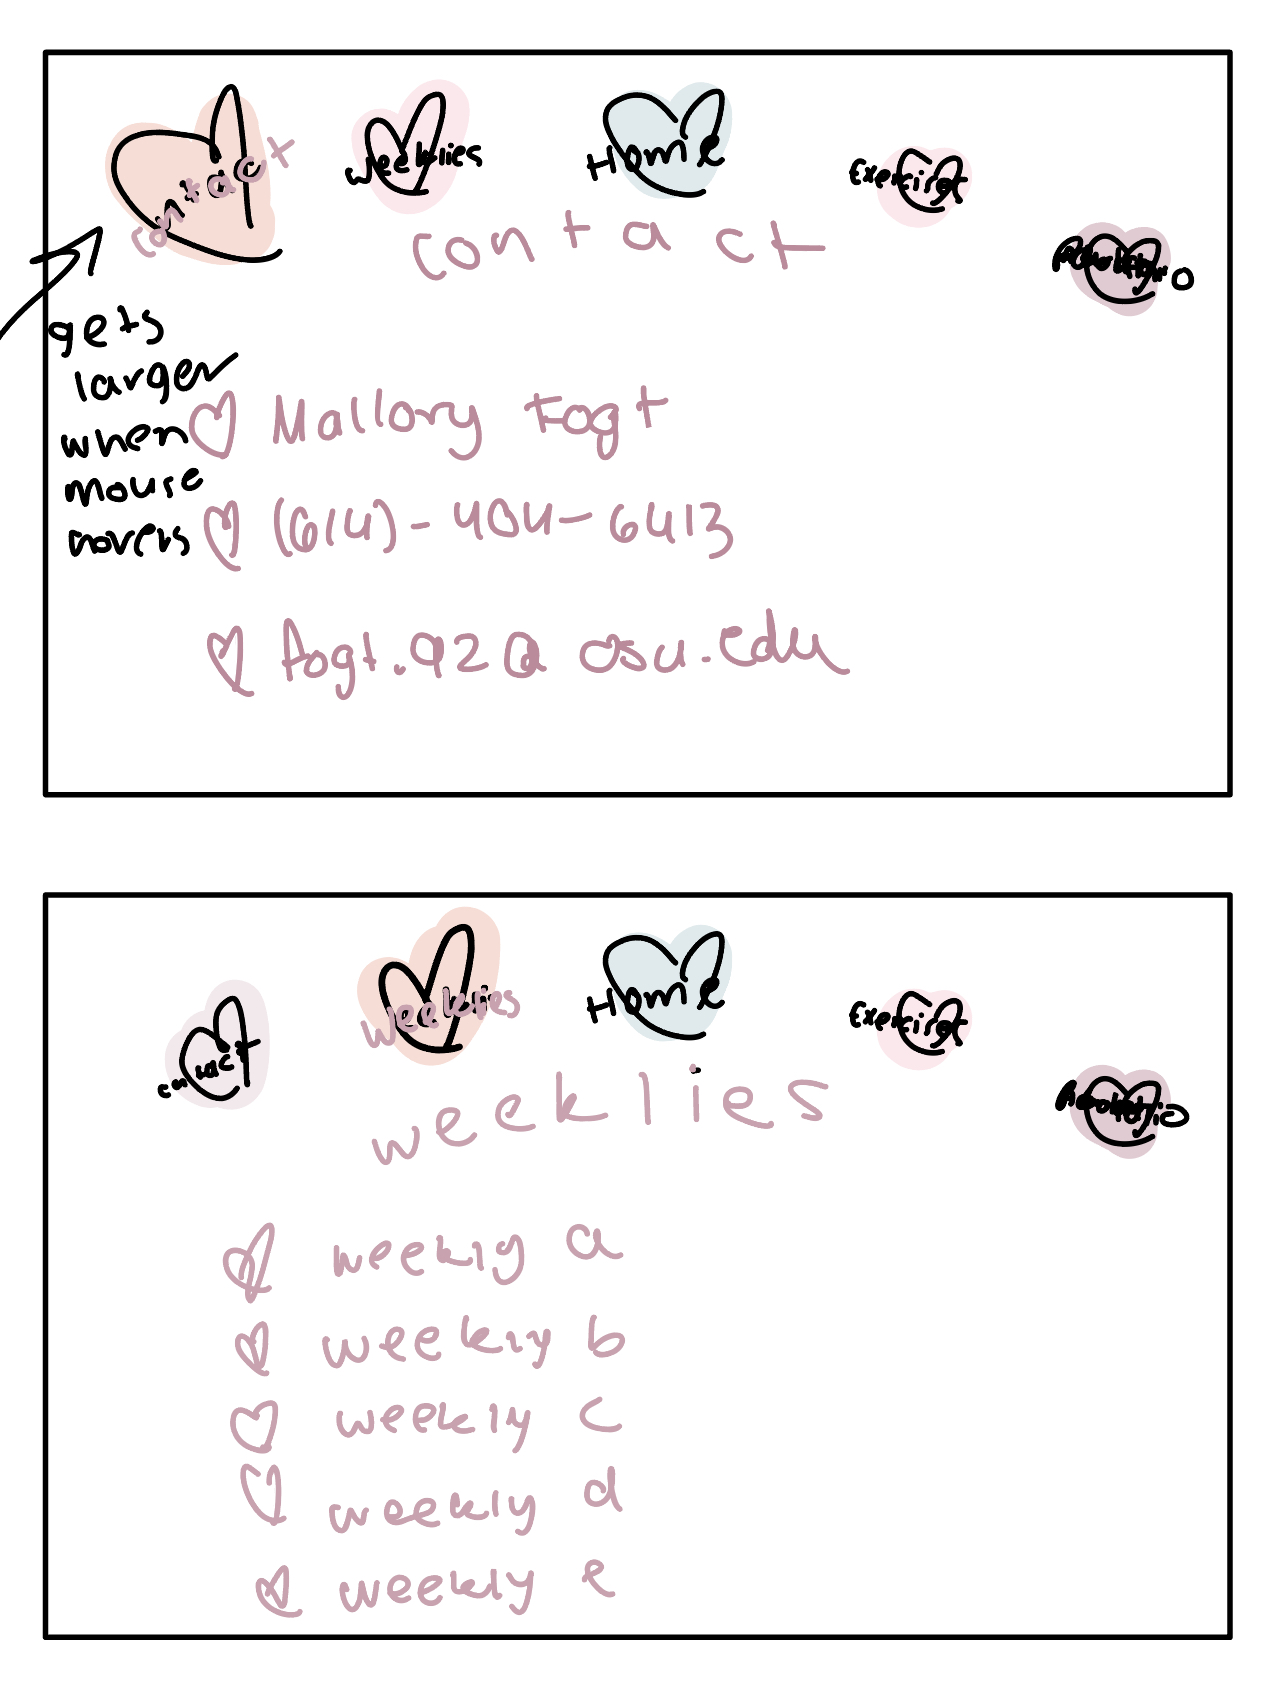 contact
weeklies
Home
Exercises
contact
gets
larger
when
mouse
hovers
Mallory Fogt
(614)-404-6413
fogt.92@osu.edu
contact
weeklies
Home
Exercises
weeklies
weekly a
weekly b
weekly c
weekly d
weekly e